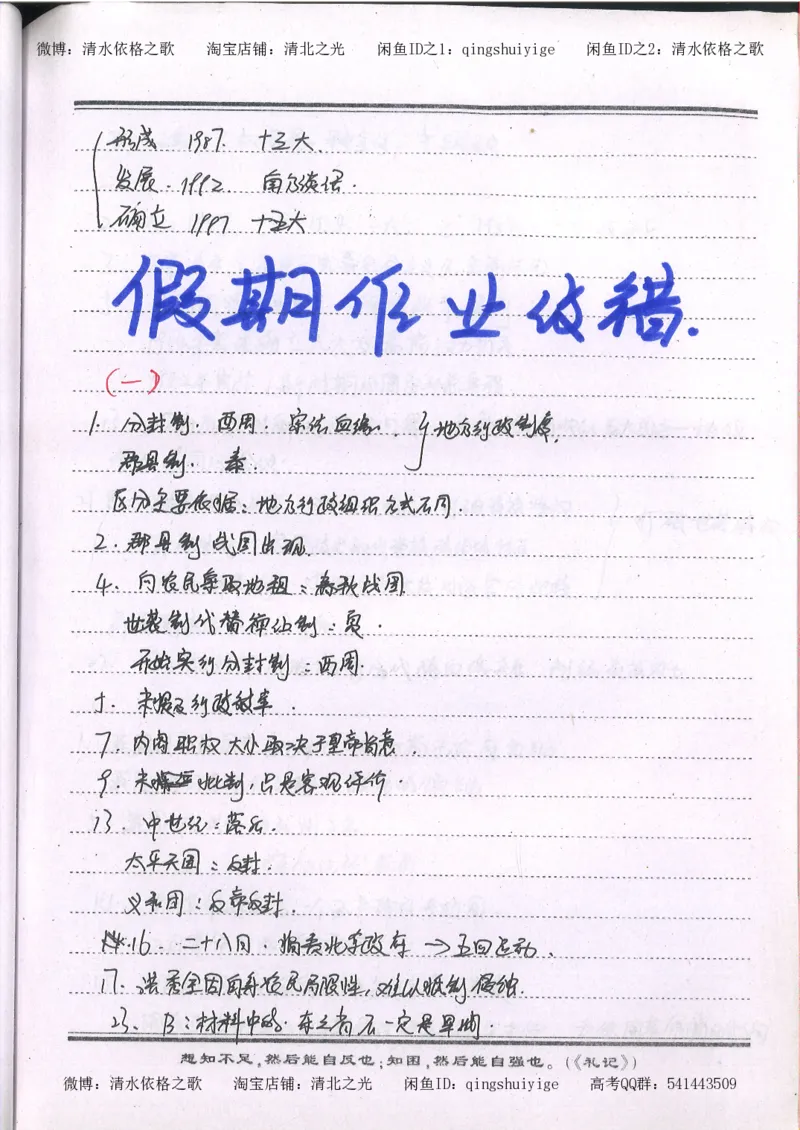 微博：清水依格之歌 淘宝店铺：清北之光 闲鱼ID之1：qingshuiyige 闲鱼ID之2：清水依格之歌
形成 1987. 十三大
发展. 1992. 南方谈话.
确立 1997 十五大
假期作业改错.
(一)
1. 分封制. 西周. 宗法血缘. } 地方行政制度.
郡县制. 秦.
区分主要依据：地方行政组织方式不同.
2. 郡县制 战国出现
4. 向农民收取地租：春秋战国
世袭制代替禅让制：夏.
开始实行分封制：西周.
十. 未提及行政效率.
7 内阁职权大小取决于皇帝旨意
9. 未 批判, 只是客观评价.
13. 中世纪：落后.
太平天国：反封.
义和团：反帝反封.
16. 二十八日. 指责北京政府 → 五四运动.
17. 洪秀全因自身农民局限性, 难以抵制侵蚀.
23. B：材料中的. 存之者不一定是早期
想知不足，然后能自反也；知困，然后能自强也。(《礼记》)
微博：清水依格之歌 淘宝店铺：清北之光 闲鱼ID：qingshuiyige 高考QQ群：541443509